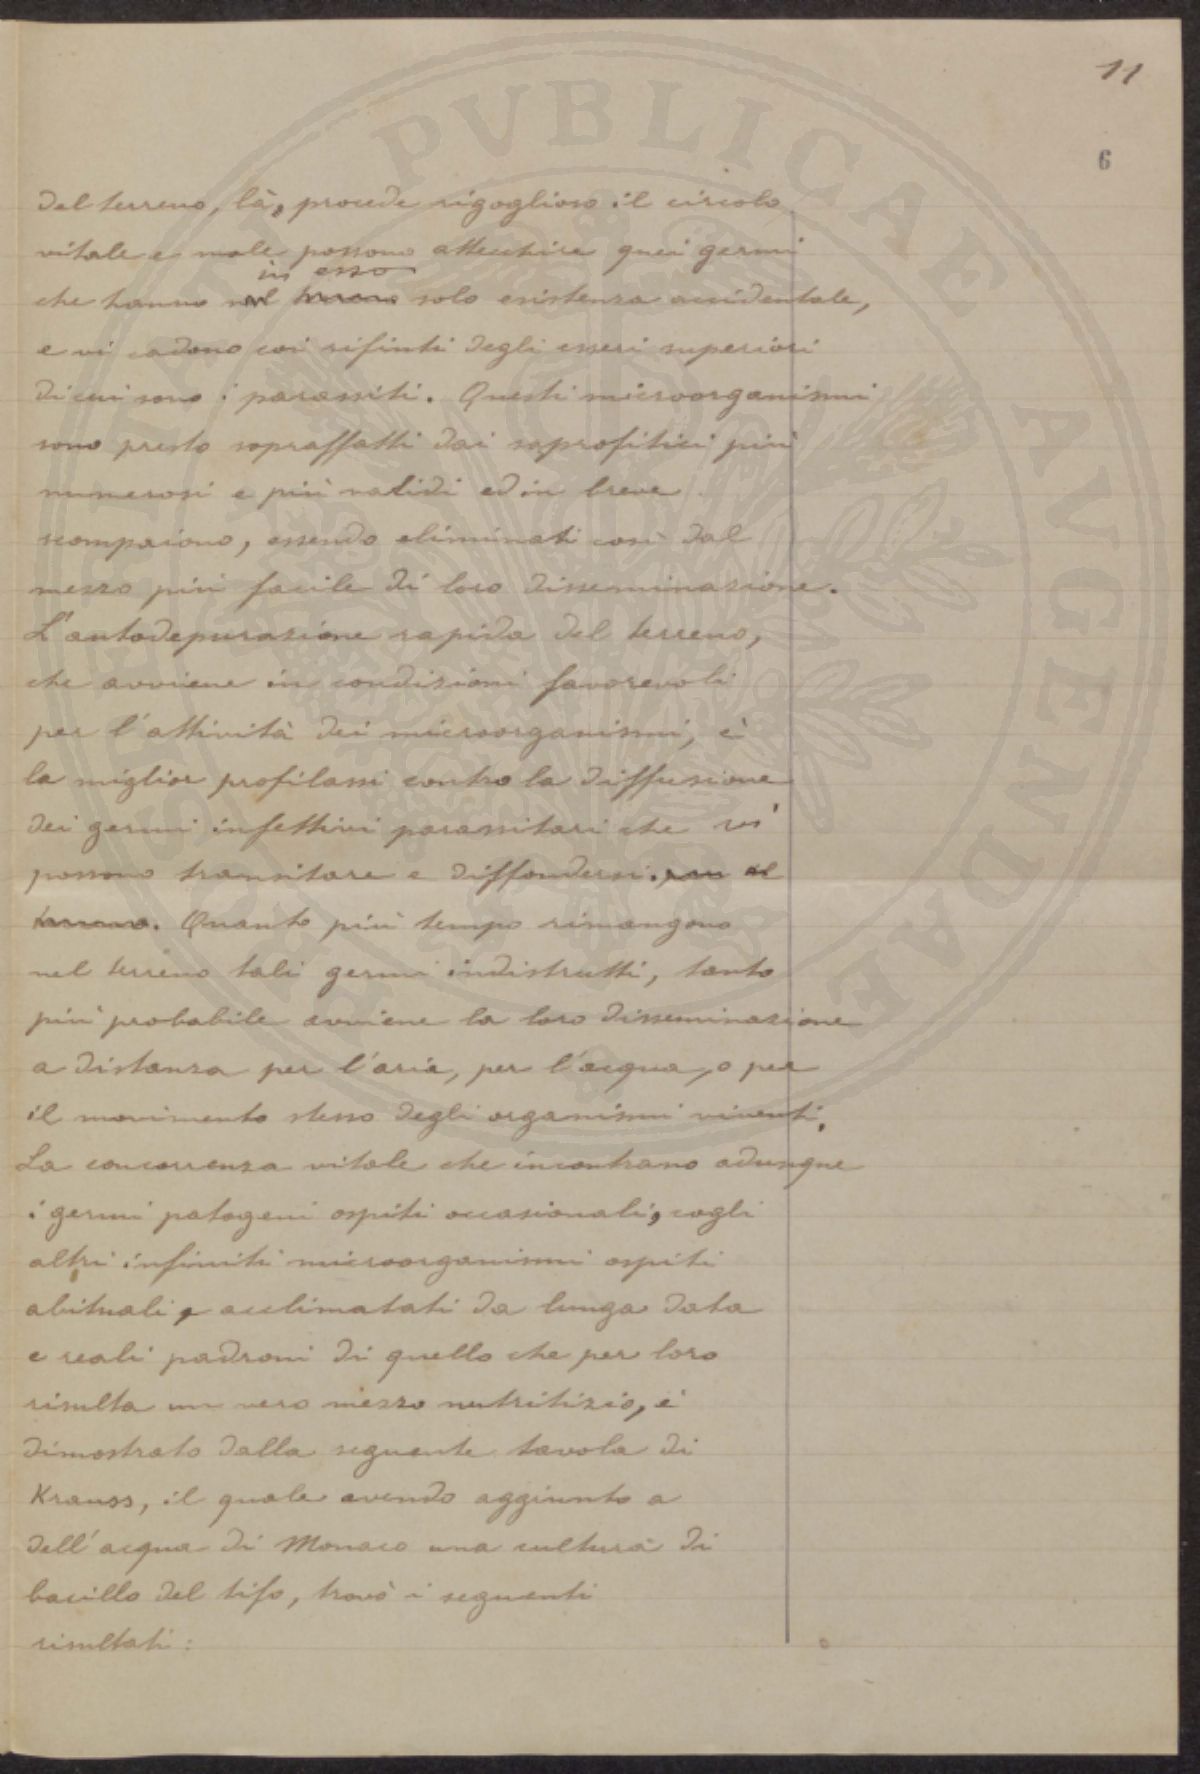 11
6
del terreno, là, procede rigoglioso il circolo
vitale e male possono attecchire quei germi
in esso
che hanno nel terreno solo esistenza accidentale,
e vi cadono coi rifiuti degli esseri superiori
di cui sono i parassiti. Questi microorganismi
sono presto sopraffatti dai saprofitici più
numerosi e più validi ed in breve
scompaiono, essendo eliminati così dal
mezzo più facile di loro disseminazione.
L'autodepurazione rapida del terreno,
che avviene in condizioni favorevoli
per l'attività dei microorganismi, è
la miglior profilassi contro la diffusione
dei germi infettivi parassitari che vi
possono transitare e diffondersi. 
Quanto più tempo rimangono
nel terreno tali germi indistrutti, tanto
più probabile avviene la loro disseminazione
a distanza per l'aria, per l'acqua, o per
il movimento stesso degli organismi viventi.
La concorrenza vitale che incontrano adunque
i germi patogeni ospiti occasionali, cogli
altri infiniti microorganismi ospiti
abituali, acclimatati da lunga data
e reali padroni di quello che per loro
risulta un vero mezzo nutritizio, è
dimostrato dalla seguente tavola di
Krauss, il quale avendo aggiunto a
dell'acqua di Monaco una cultura di
bacillo del tifo, trovò i seguenti
risultati:
RIVM SALVTI PVBLICAE AVGENDAE